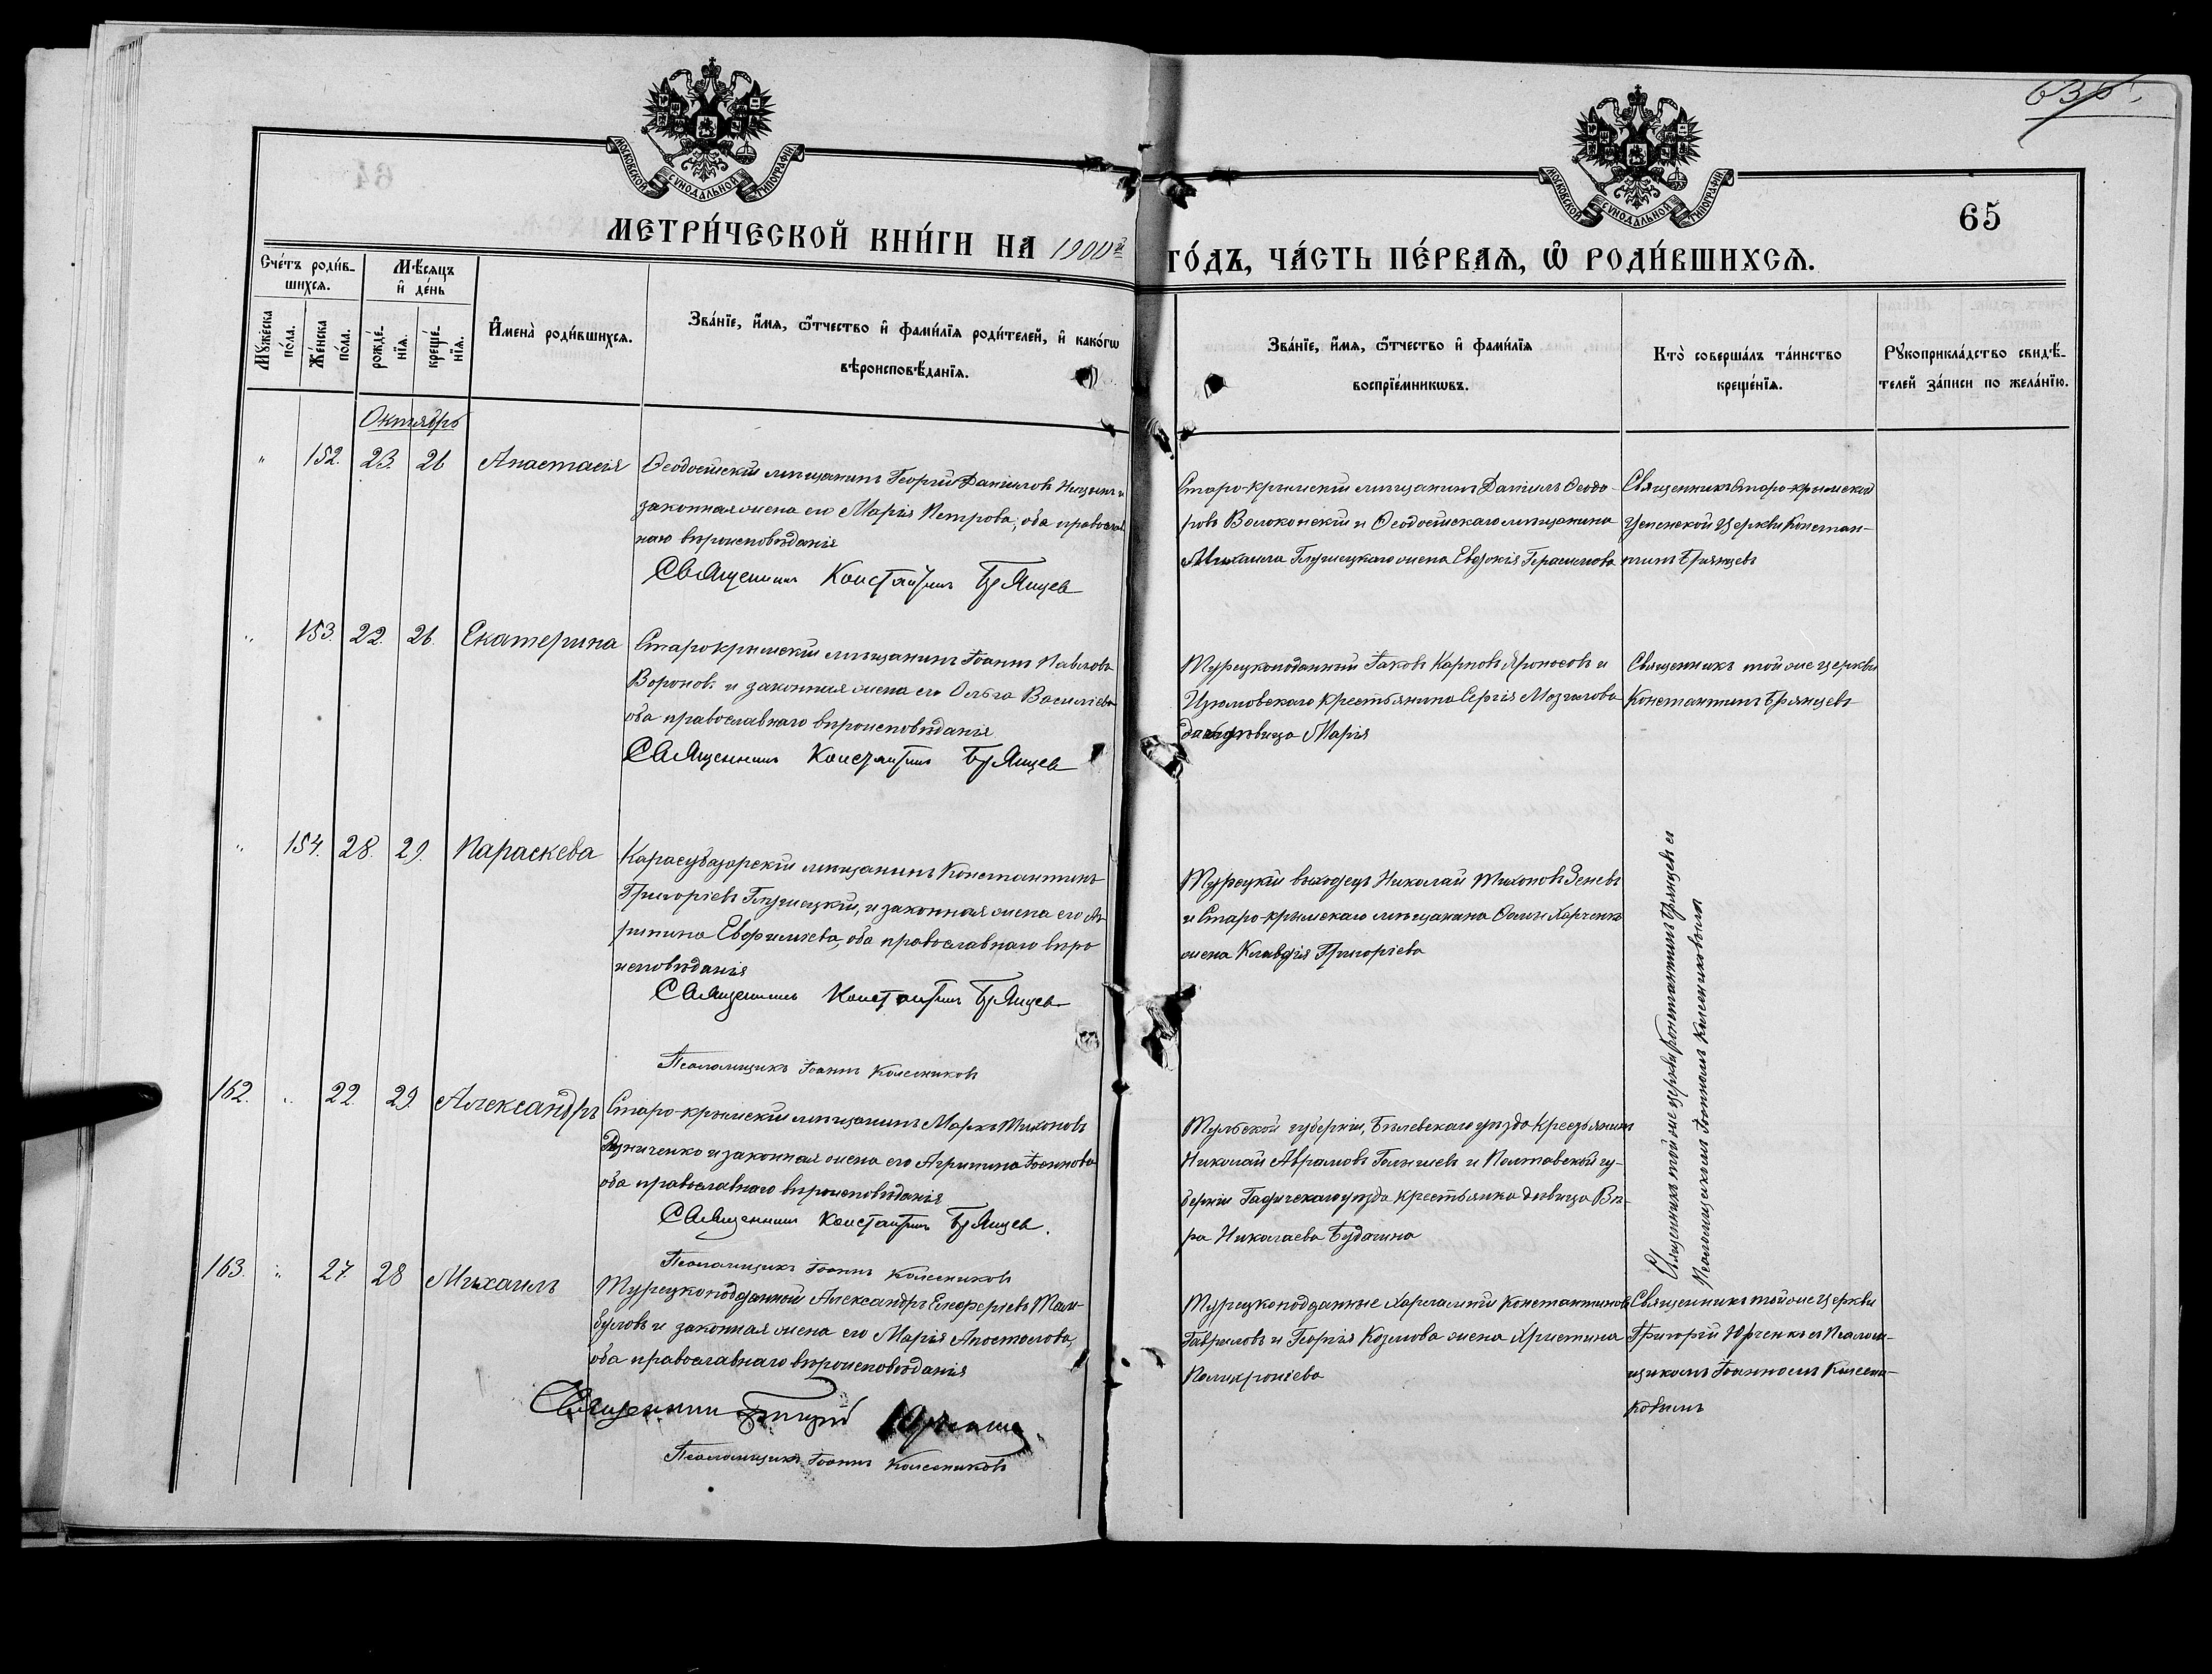 635.
65
МОСКОВСКОЙ СѴНОДАЛЬНОЙ ТИПОГРАФІИ
МОСКОВСКОЙ СѴНОДАЛЬНОЙ ТИПОГРАФІИ
МЕТРИ́ЧЕСКОЙ КНИ́ГИ НА 1900й ГО́ДЪ, ЧА́СТЬ ПЕ́РВАѦ, Ѡ҆ РОДИ́ВШИХСѦ.
Сче́тъ роди́в-
шихсѧ.
Мѣ́сѧцъ
и҆ де́нь
Мꙋ́жеска по́ла.
Же́нска по́ла.
рожде́-
нїѧ.
креще́-
нїѧ.
И҆мена̀ роди́вшихсѧ.
Зва́нїе, и҆́мѧ, ѻ҆́тчество и҆ фами́лїѧ роди́телей, и҆ како́гѡ
вѣроисповѣ́данїѧ.
Зва́нїе, и҆́мѧ, ѻ҆́тчество и҆ фами́лїѧ
воспрїе́мникѡвъ.
Кто̀ соверша́лъ та́инство
креще́нїѧ.
Рꙋкоприкла́дство свидѣ́-
телей за́писи по жела́нїю.
Октябрь
" 152. 23. 26 Анастасія
Ѳеодосійскій мѣщанинъ Георгій Даніиловъ и
законная жена его Марія Петрова, оба православ
наго вѣроисповѣданія
Священникъ Константинъ Брянцевъ
Старо-крымскій мѣщанинъ Даніилъ Ѳеодо-
ровъ Волоконскій и Ѳеодосійскаго мѣщанина
Михаила Глушецкаго жена Евдокія Герасимова
Священникъ Старо-крымской
Успенской Церкви Констан-
тинъ Брянцевъ
" 153. 22. 26. Екатерина
Старокрымскій мѣщанинъ Іоаннъ Павловъ
Вороновъ и законная жена его Ольга Василіева
оба православнаго вѣроисповѣданія
Священникъ Константинъ Брянцевъ
Турецкоподданный Іаковъ Карповъ и
Изюмовскаго крестьянина Сергія Мозгалова
Марія
Священникъ той же церкви
Константинъ Брянцевъ
" 154. 28. 29. Параскева
Карасубазарскій мѣщанинъ Константинъ
Григоріевъ Глушецкій, и законная жена его Аг
рипина Евфиміева, оба православнаго вѣро
исповѣданія
Священникъ Константинъ Брянцевъ
Псаломщикъ Іоаннъ Колесниковъ
Турецкій выходецъ Николай Тихоновъ Зеневъ
и Старо-крымскаго мѣщанина Ѳомы Харченко
жена Клавдія Григоріева
Священникъ той же церкви Константинъ Брянцевъ съ
Псаломщикомъ Іоанномъ Колесниковымъ
162. " 22. 29. Александръ
Старо-крымскій мѣщанинъ Маркъ Тихоновъ
и законная жена его Агрипина Іоаннова
оба православнаго вѣроисповѣданія
Священникъ Константинъ Брянцевъ.
Псаломщикъ Іоаннъ Колесниковъ
Тульской губерніи, Бѣлевскаго уѣзда крестьянинъ
Николай Аврамовъ и Полтавской гу-
берніи Гадячскаго уѣзда крестьянка дѣвица Вѣ-
ра Николаева Будагина
163. " 27. 28 Михаилъ
Турецкоподданный Александръ Елефѳеріевъ Там-
буловъ и законная жена его Марія Апостолова,
оба православнаго вѣроисповѣданія
Священникъ Григорій Юрченко
Псаломщикъ Іоаннъ Колесниковъ
Турецкоподданные Харлампій Константиновъ
Гавриловъ и Георгія Козмова жена Христина
Полихроніева
Священникъ той же Церкви
Григорій Юрченко съ Псалом-
щикомъ Іоанномъ Колесни-
ковымъ